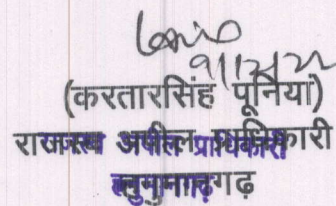 (करतारसिंह पूनिया)
राजस्व अपील प्राधिकारी
हनुमानगढ़